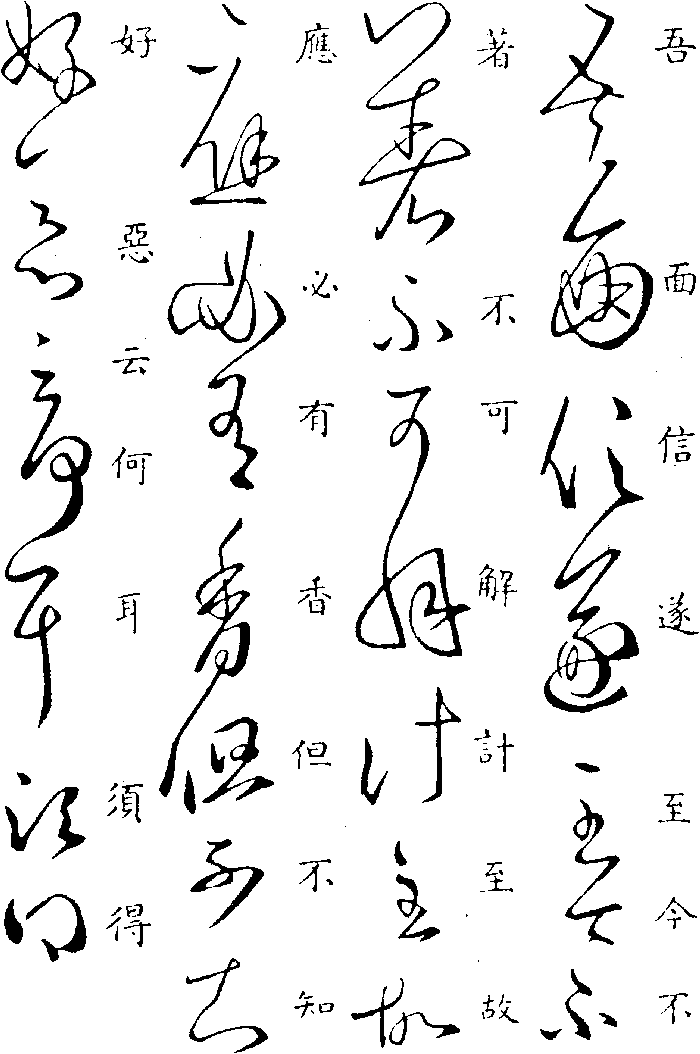 吾面信遂至今不
著不可解計至故
應必有香但不知
好惡云何耳須得